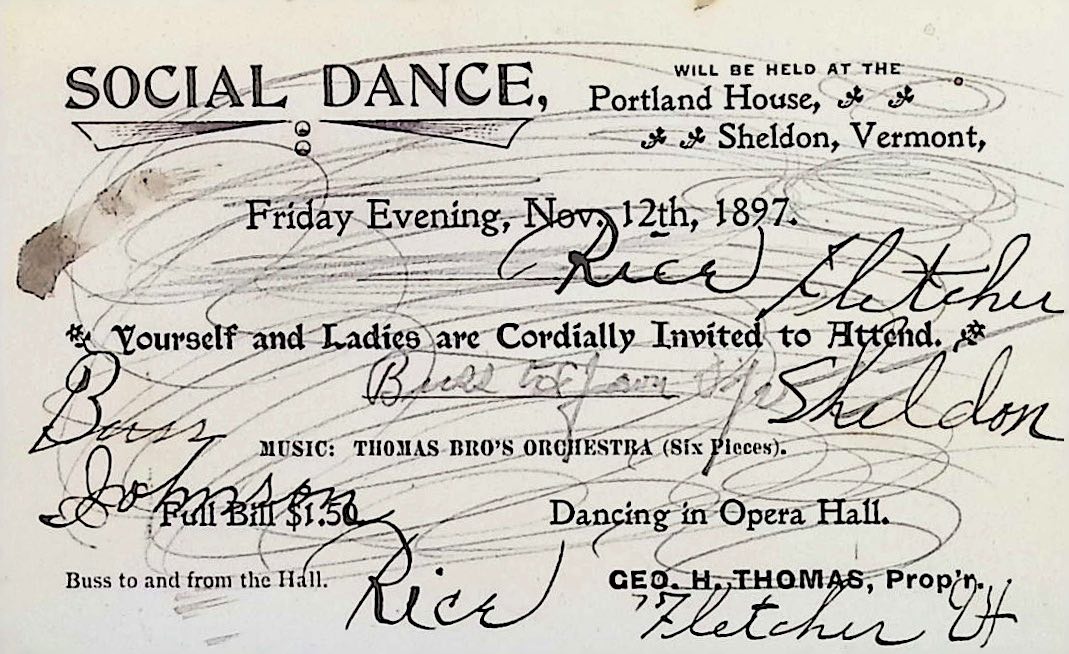 SOCIAL DANCE,
WILL BE HELD AT THE
Portland House,
Sheldon, Vermont,
Friday Evening, Nov. 12th, 1897.
Rice Fletcher
Yourself and Ladies are Cordially Invited to Attend.
Buss
Sheldon
Buss
MUSIC: THOMAS BRO'S ORCHESTRA (Six Pieces).
Johnson
Full Bill $1.50
Dancing in Opera Hall.
Buss to and from the Hall.
GEO. H. THOMAS, Prop'r.
Rice
Fletcher Vt